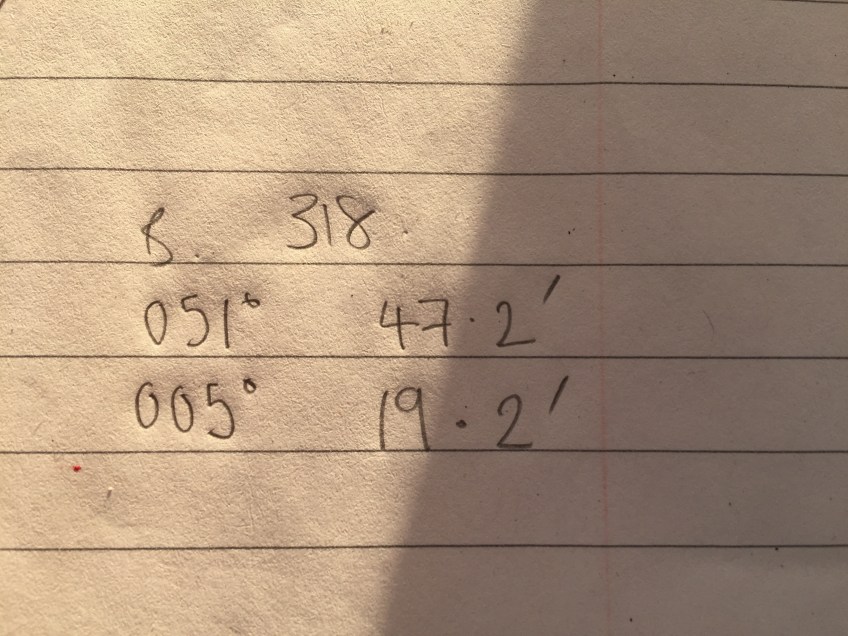 B. 318.
051° 47.2'
005° 19.2'